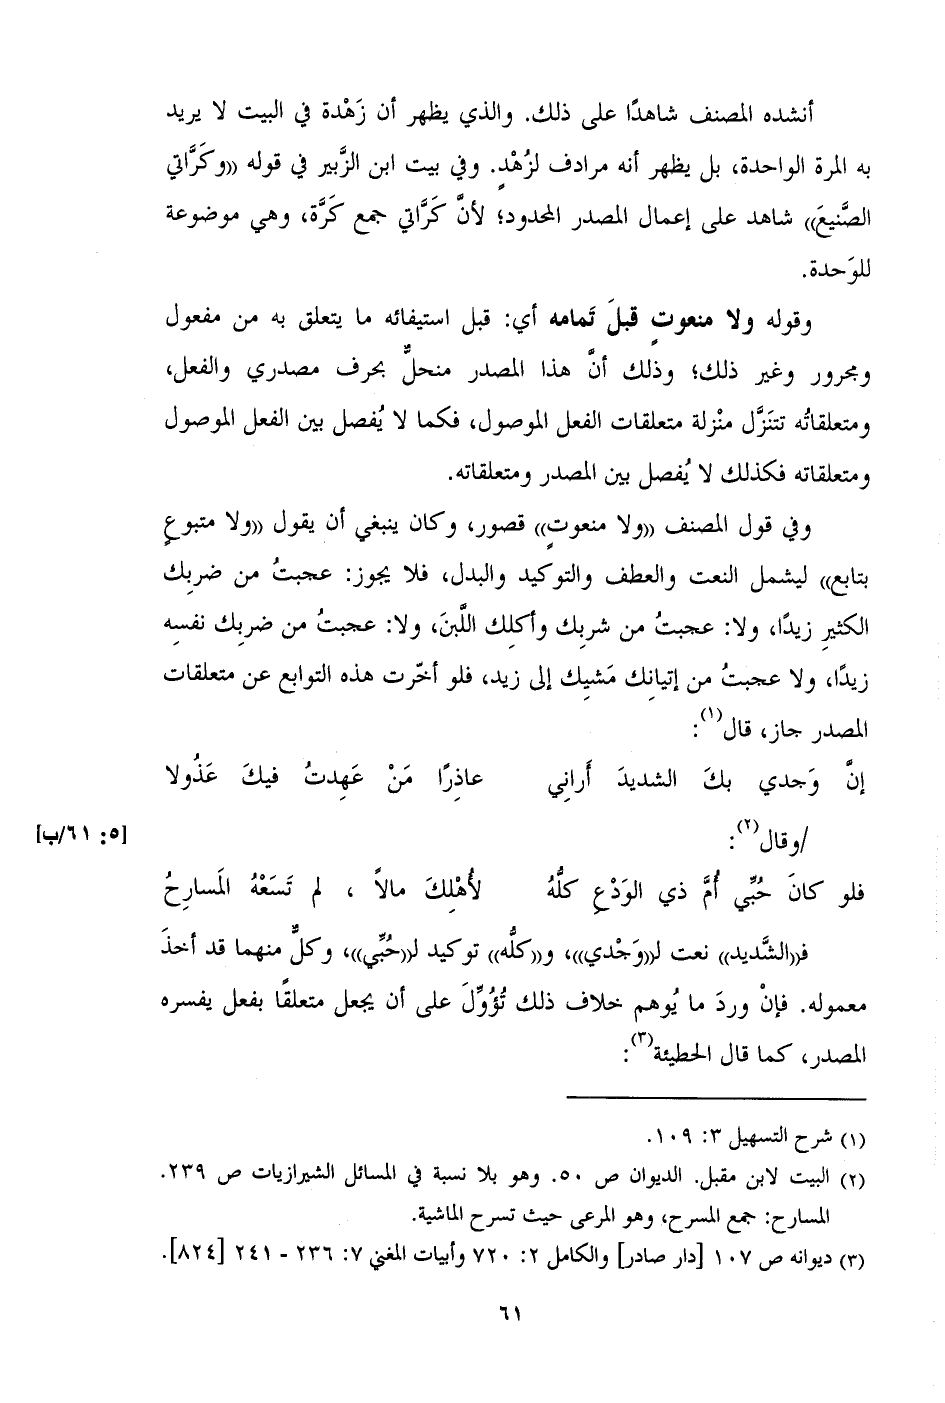 أنشده المصنف شاهدًا على ذلك. والذي يظهر أن زَهْدة في البيت لا يريد
به المرة الواحدة، بل يظهر أنه مرادف لزُهْدٍ. وفي بيت ابن الزَّبير في قوله «وكَرَّاتي
الصَّنيعَ» شاهد على إعمال المصدر المحدود؛ لأنَّ كَرَّاتي جمع كَرَّة، وهي موضوعة
للوَحدة.
وقوله ولا منعوتٍ قبلَ تَمامه أي: قبل استيفائه ما يتعلق به من مفعول
ومجرور وغير ذلك؛ وذلك أنَّ هذا المصدر منحلٌّ بحرف مصدري والفعل،
ومتعلقاتُه تتنَزَّل منْزلة متعلقات الفعل الموصول، فكما لا يُفصل بين الفعل الموصول
ومتعلقاته فكذلك لا يُفصل بين المصدر ومتعلقاته.
وفي قول المصنف «ولا منعوتٍ» قصور، وكان ينبغي أن يقول «ولا متبوعٍ
بتابع» ليشمل النعت والعطف والتوكيد والبدل، فلا يجوز: عجبتُ من ضربِك
الكثيرِ زيدًا، ولا: عجبتُ من شربك وأكلِك اللَّبنَ، ولا: عجبتُ من ضربِك نفسِه
زيدًا، ولا عجبتُ من إتيانِك مَشيِك إلى زيد، فلو أخّرت هذه التوابع عن متعلقات
المصدر جاز، قال(١):
إنَّ وَجدي بكَ الشديدَ أَراني عاذِرًا مَنْ عَهِدتُ فيكَ عَذُولا
[٥: ٦١/ب]
/وقال(٢):
فلو كانَ حُبِّي أُمَّ ذي الوَدْعِ كلُّهُ لأُهْلِكَ مالاً ، لم تَسَعْهُ المَسارِحُ
فـ«الشَّديد» نعت لـ«وَجْدي»، و«كلُّه» توكيد لـ«حُبِّي»، وكلٌّ منهما قد أخذَ
معموله. فإنْ وردَ ما يُوهم خلاف ذلك تُؤُوِّلَ على أن يجعل متعلقًا بفعل يفسره
المصدر، كما قال الحطيئة(٣):
(١) شرح التسهيل ٣: ١٠٩.
(٢) البيت لابن مقبل. الديوان ص ٥٠. وهو بلا نسبة في المسائل الشيرازيات ص ٢٣٩.
المسارح: جمع المسرح، وهو المرعى حيث تسرح الماشية.
(٣) ديوانه ص ١٠٧ [دار صادر] والكامل ٢: ٧٢٠ وأبيات المغني ٧: ٢٣٦ - ٢٤١ [٨٢٤].
٦١